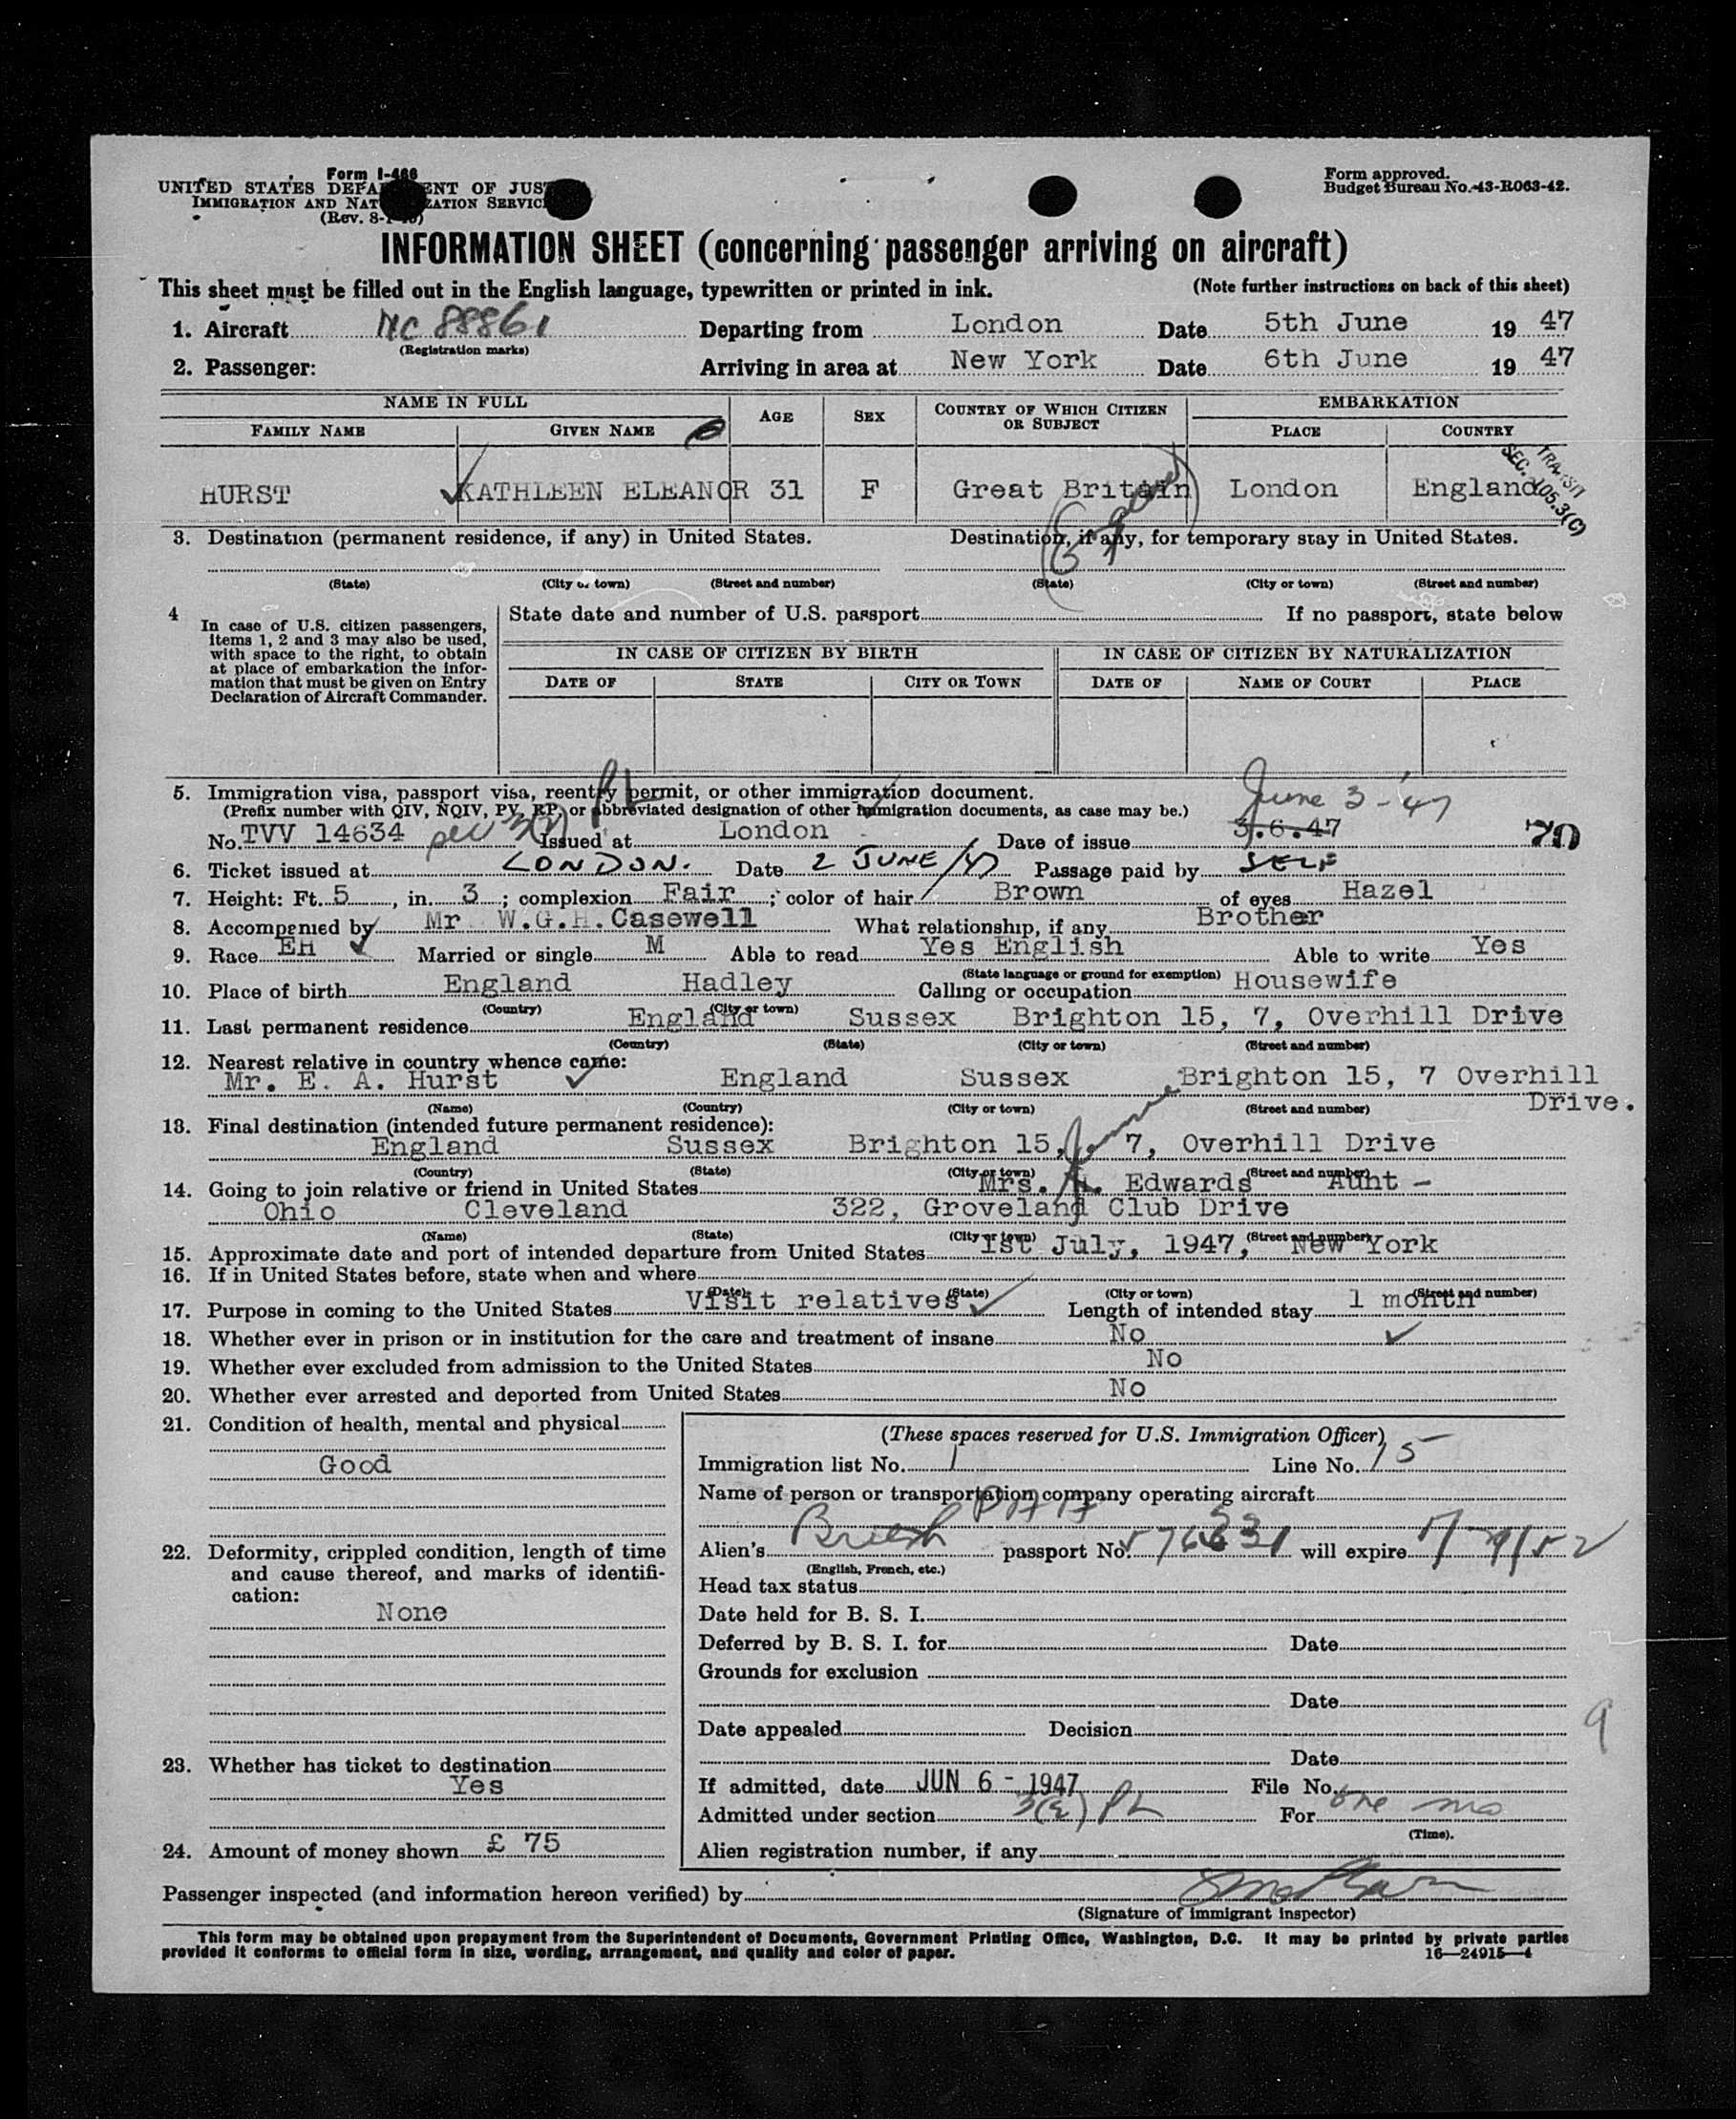 Form I-466
UNITED STATES DEPA ENT OF JUS
IMMIGRATION AND NAT ZATION SERVIC
(Rev. 8-
Form approved.
Budget Bureau No. 43-R063-42.
INFORMATION SHEET (concerning passenger arriving on aircraft)
This sheet must be filled out in the English language, typewritten or printed in ink. (Note further instructions on back of this sheet)
1. Aircraft NC 88861 Departing from London Date 5th June 19 47
(Registration marks)
2. Passenger: Arriving in area at New York Date 6th June 19 47
NAME IN FULL AGE SEX COUNTRY OF WHICH CITIZEN OR SUBJECT EMBARKATION
FAMILY NAME GIVEN NAME PLACE COUNTRY
HURST KATHLEEN ELEANOR 31 F Great Britain London England
TRANSIT
SEC. 105.3(C)
3. Destination (permanent residence, if any) in United States. Destination, if any, for temporary stay in United States.
(State) (City or town) (Street and number) (State) (City or town) (Street and number)
4 In case of U.S. citizen passengers, items 1, 2 and 3 may also be used, with space to the right, to obtain at place of embarkation the information that must be given on Entry Declaration of Aircraft Commander.
State date and number of U.S. passport If no passport, state below
IN CASE OF CITIZEN BY BIRTH IN CASE OF CITIZEN BY NATURALIZATION
DATE OF STATE CITY OR TOWN DATE OF NAME OF COURT PLACE
5. Immigration visa, passport visa, reentry permit, or other immigration document.
(Prefix number with QIV, NQIV, PV, RP, or abbreviated designation of other immigration documents, as case may be.) June 3-'47
No. TVV 14634 sec 3(2) Issued at London Date of issue 3.6.47 70
6. Ticket issued at LONDON. Date 2 JUNE/47 Passage paid by SELF
7. Height: Ft. 5, in. 3; complexion Fair; color of hair Brown of eyes Hazel
8. Accompenied by Mr W.G.H. Casewell What relationship, if any Brother
9. Race EH Married or single M Able to read Yes English Able to write Yes
(State language or ground for exemption)
10. Place of birth England Hadley Calling or occupation Housewife
(Country) (City or town)
11. Last permanent residence England Sussex Brighton 15, 7, Overhill Drive
(Country) (State) (City or town) (Street and number)
12. Nearest relative in country whence came:
Mr. E. A. Hurst England Sussex Brighton 15, 7 Overhill
Drive.
(Name) (Country) (City or town) (Street and number)
13. Final destination (intended future permanent residence):
England Sussex Brighton 15, 7, Overhill Drive
(Country) (State) (City or town) (Street and number)
14. Going to join relative or friend in United States Mrs. Edwards Aunt -
Ohio Cleveland 322, Groveland Club Drive
(Name) (State) (City or town) (Street and number)
15. Approximate date and port of intended departure from United States 1st July, 1947, New York
16. If in United States before, state when and where
(Date) (State) (City or town) (Street and number)
17. Purpose in coming to the United States Visit relatives Length of intended stay 1 month
18. Whether ever in prison or in institution for the care and treatment of insane No
19. Whether ever excluded from admission to the United States No
20. Whether ever arrested and deported from United States No
21. Condition of health, mental and physical
Good
22. Deformity, crippled condition, length of time
and cause thereof, and marks of identifi-
cation:
None
23. Whether has ticket to destination
Yes
24. Amount of money shown £ 75
(These spaces reserved for U.S. Immigration Officer)
Immigration list No. 1 Line No. 15
Name of person or transportation company operating aircraft
PAA
Alien's British passport No. will expire
(English, French, etc.)
Head tax status
Date held for B. S. I.
Deferred by B. S. I. for Date
Grounds for exclusion
Date
Date appealed Decision
9
Date
If admitted, date JUN 6 - 1947 File No.
Admitted under section 3(2) PL For one mo
(Time).
Alien registration number, if any
Passenger inspected (and information hereon verified) by
(Signature of immigrant inspector)
This form may be obtained upon prepayment from the Superintendent of Documents, Government Printing Office, Washington, D.C. It may be printed by private parties
provided it conforms to official form in size, wording, arrangement, and quality and color of paper. 16—24915-4